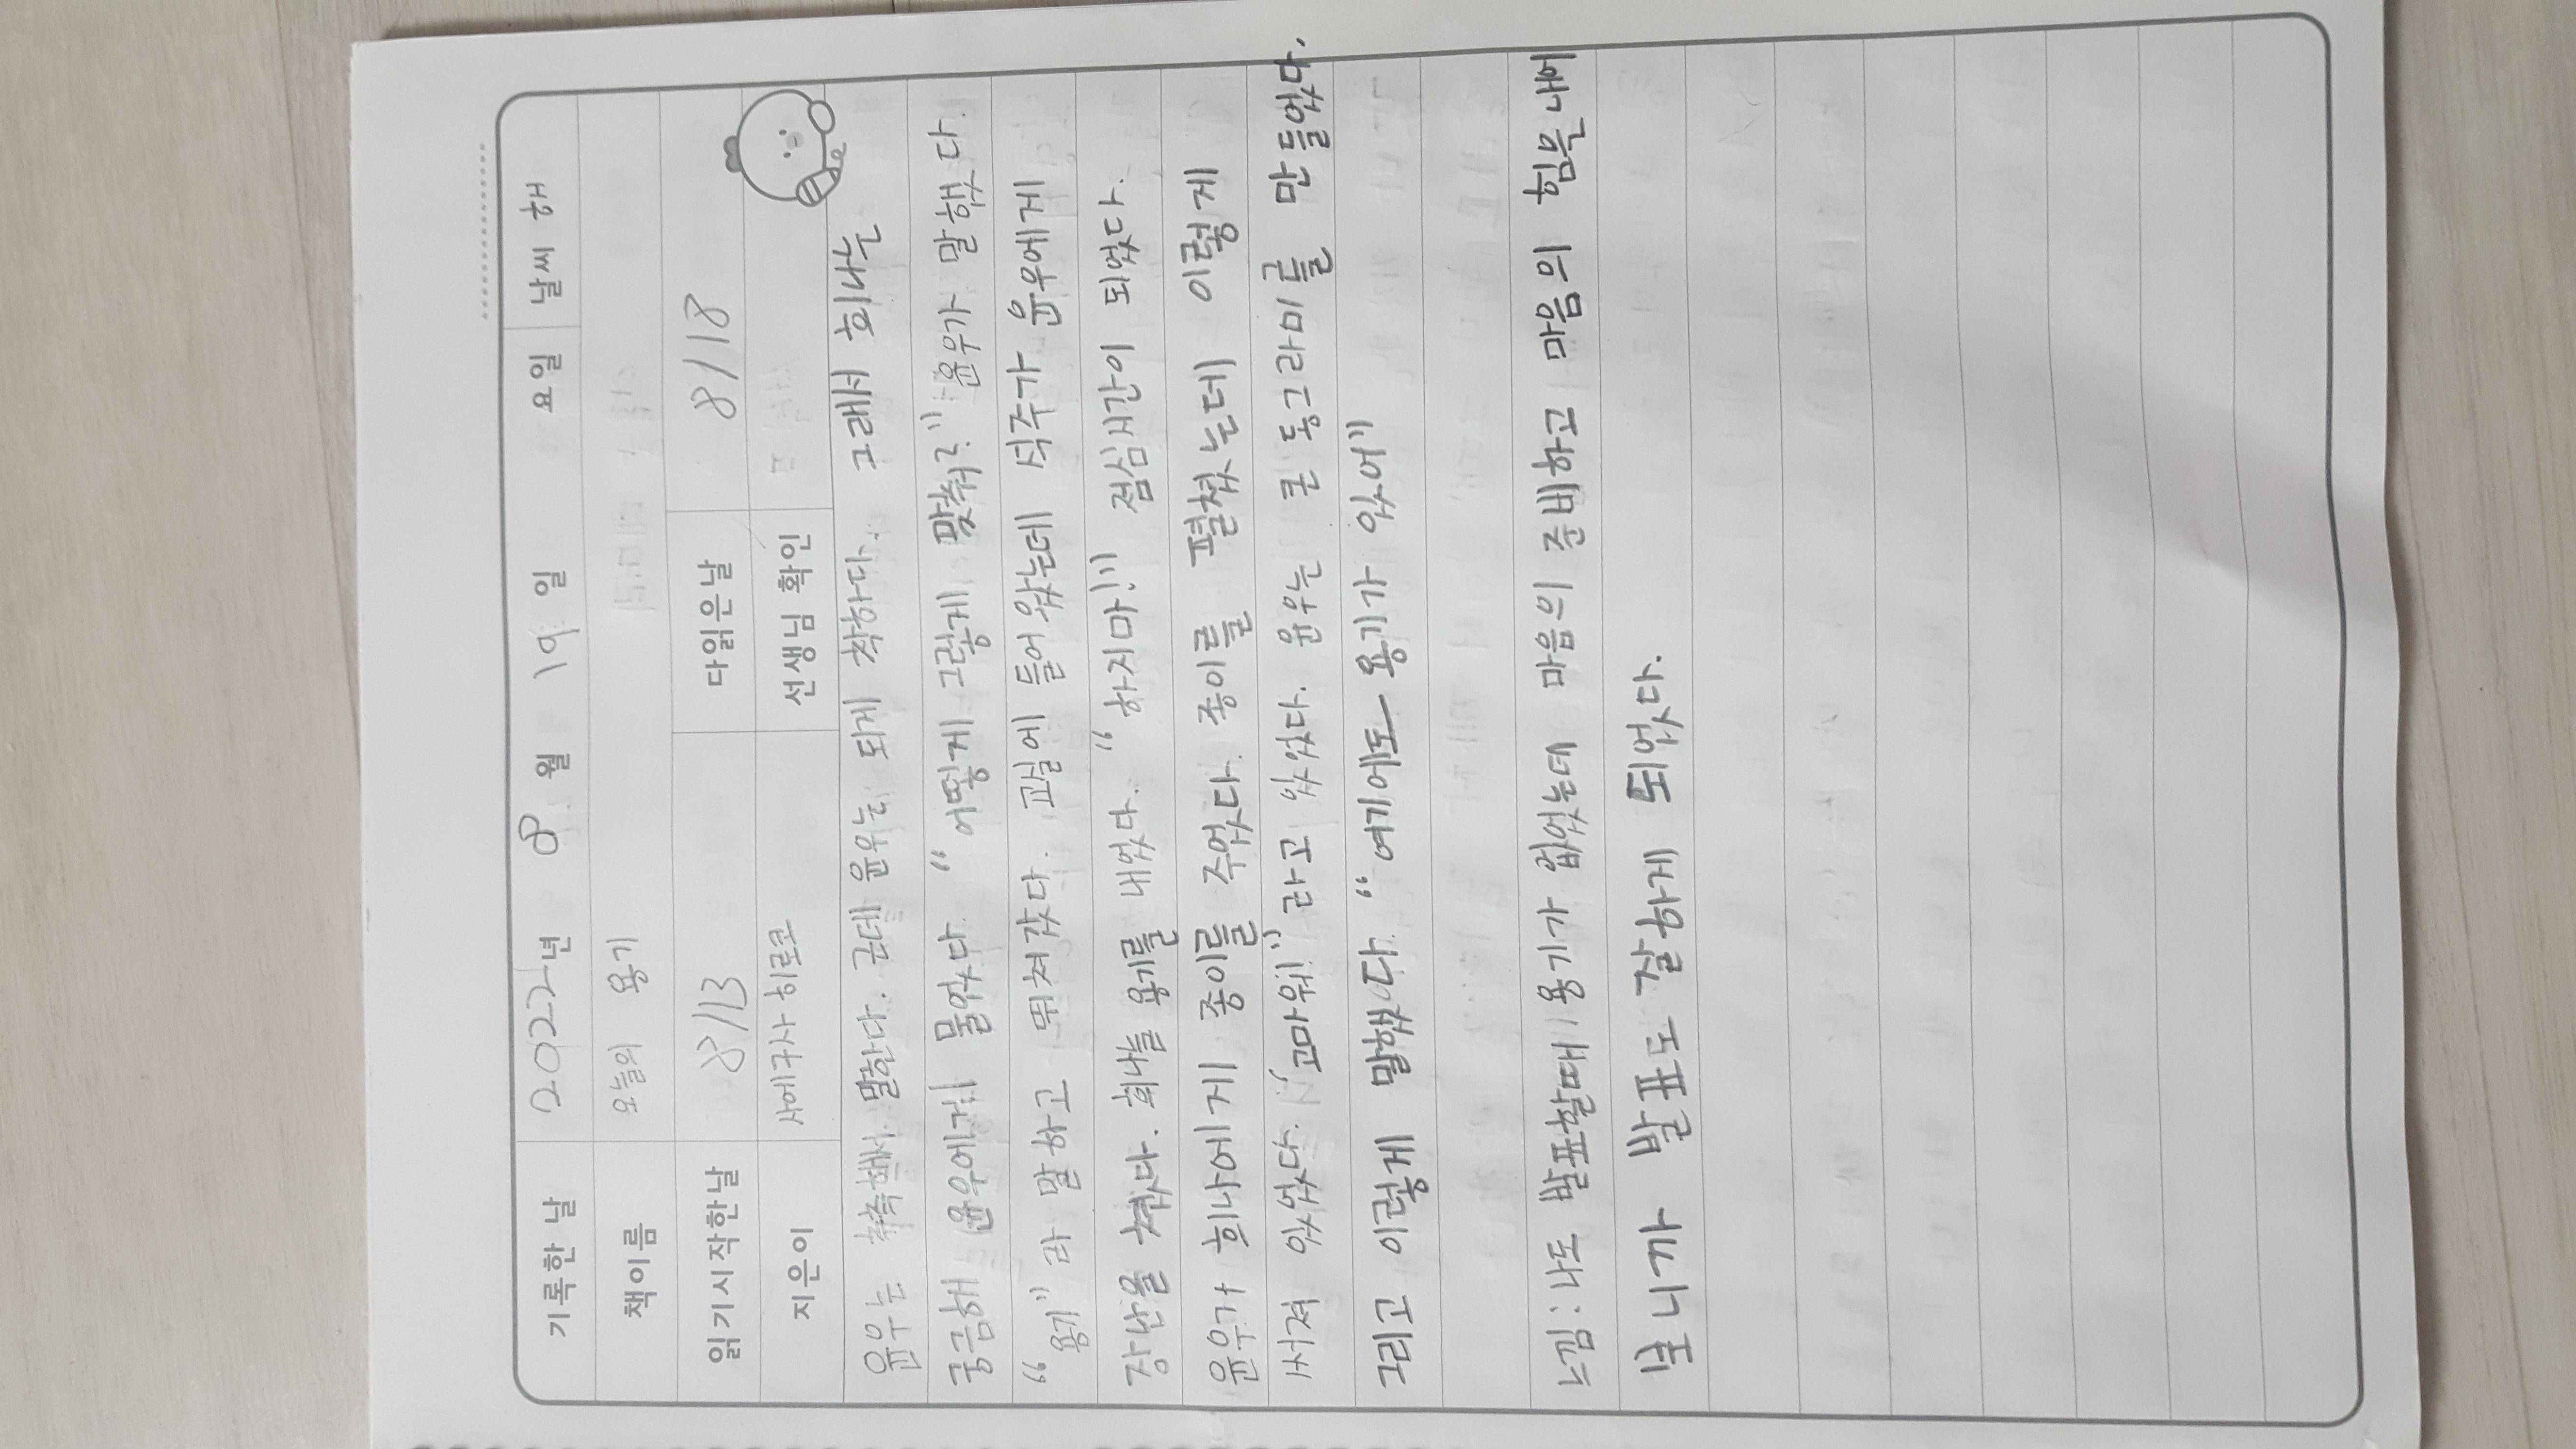 기록한 날 2022년 8월 19일 요일 날씨 해
책이름 오늘의 용기
읽기시작한날 8/13 다읽은날 8/18
지은이 사에구사 히로코 선생님 확인
윤우는 축축해서 말한다. 근데 윤우는 되게 착하다. 그래서 희나는
궁금해 윤우에게 물었다. “어떻게 그렇게 맞춰?” 윤우가 말했다.
“용기”라 말하고 뛰쳐갔다. 교실에 들어왔는데 석주가 윤우에게
장난을 쳤다. 희나는 용기를 내었다. “하지마!” 점심시간이 되었다.
윤우가 희나에게 종이를 주었다. 종이를 펼쳤는데 이렇게
써져 있었다. “고마워!” 라고 있었다. 윤우는 큰 동그라미를 만들었다.
그리고 이렇게 말했다. “여기에도 용기가 있어”
느낌: 나도 발표할때 용기가 없었는데 마음의 준비하고 마음의 힘을 내어
보니까 발표도 잘하게 되었다.